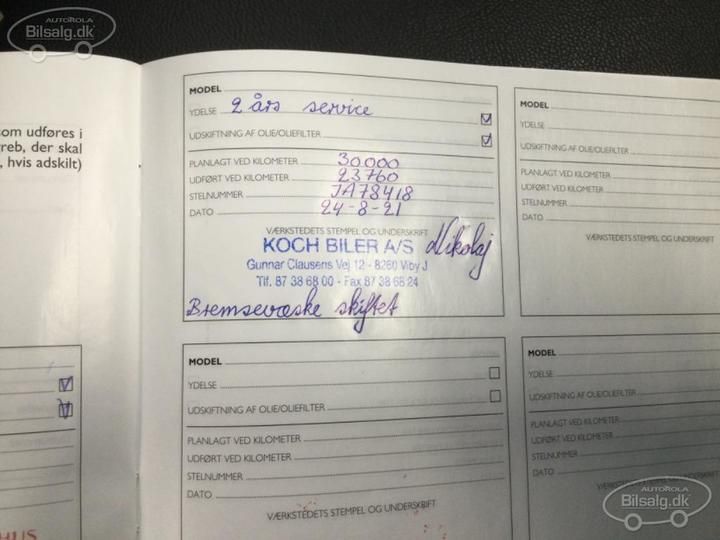 AUTOROLA
Bilsalg.dk
som udføres i
greb, der skal
, hvis adskilt)
MODEL
YDELSE 2 års service
UDSKIFTNING AF OLIE/OLIEFILTER
PLANLAGT VED KILOMETER 30000
UDFØRT VED KILOMETER 23760
STELNUMMER JA78418
DATO 24-8-21
VÆRKSTEDETS STEMPEL OG UNDERSKRIFT
KOCH BILER A/S Nikolaj
Gunnar Clausens Vej 12 - 8260 Viby J
Tlf. 87 38 68 00 - Fax 87 38 68 24
Bremsevæske skiftet
MODEL
YDELSE
UDSKIFTNING AF OLIE/OLIEFILTER
PLANLAGT VED KILOMETER
UDFØRT VED KILOMETER
STELNUMMER
DATO
VÆRKSTEDETS STEMPEL OG UNDERSKRIFT
MODEL
YDELSE
UDSKIFTNING AF OLIE/OLIEFILTER
PLANLAGT VED KILOMETER
UDFØRT VED KILOMETER
STELNUMMER
DATO
VÆRKSTEDETS STEMPEL OG UNDERSKRIFT
MODEL
YDELSE
UDSKIFTNING AF OLIE/OLIEFILTER
PLANLAGT VED KILOMETER
UDFØRT VED KILOMETER
STELNUMMER
DATO
VÆRKSTEDETS STEMPEL OG UNDERSKRIFT
AUTOROLA
Bilsalg.dk